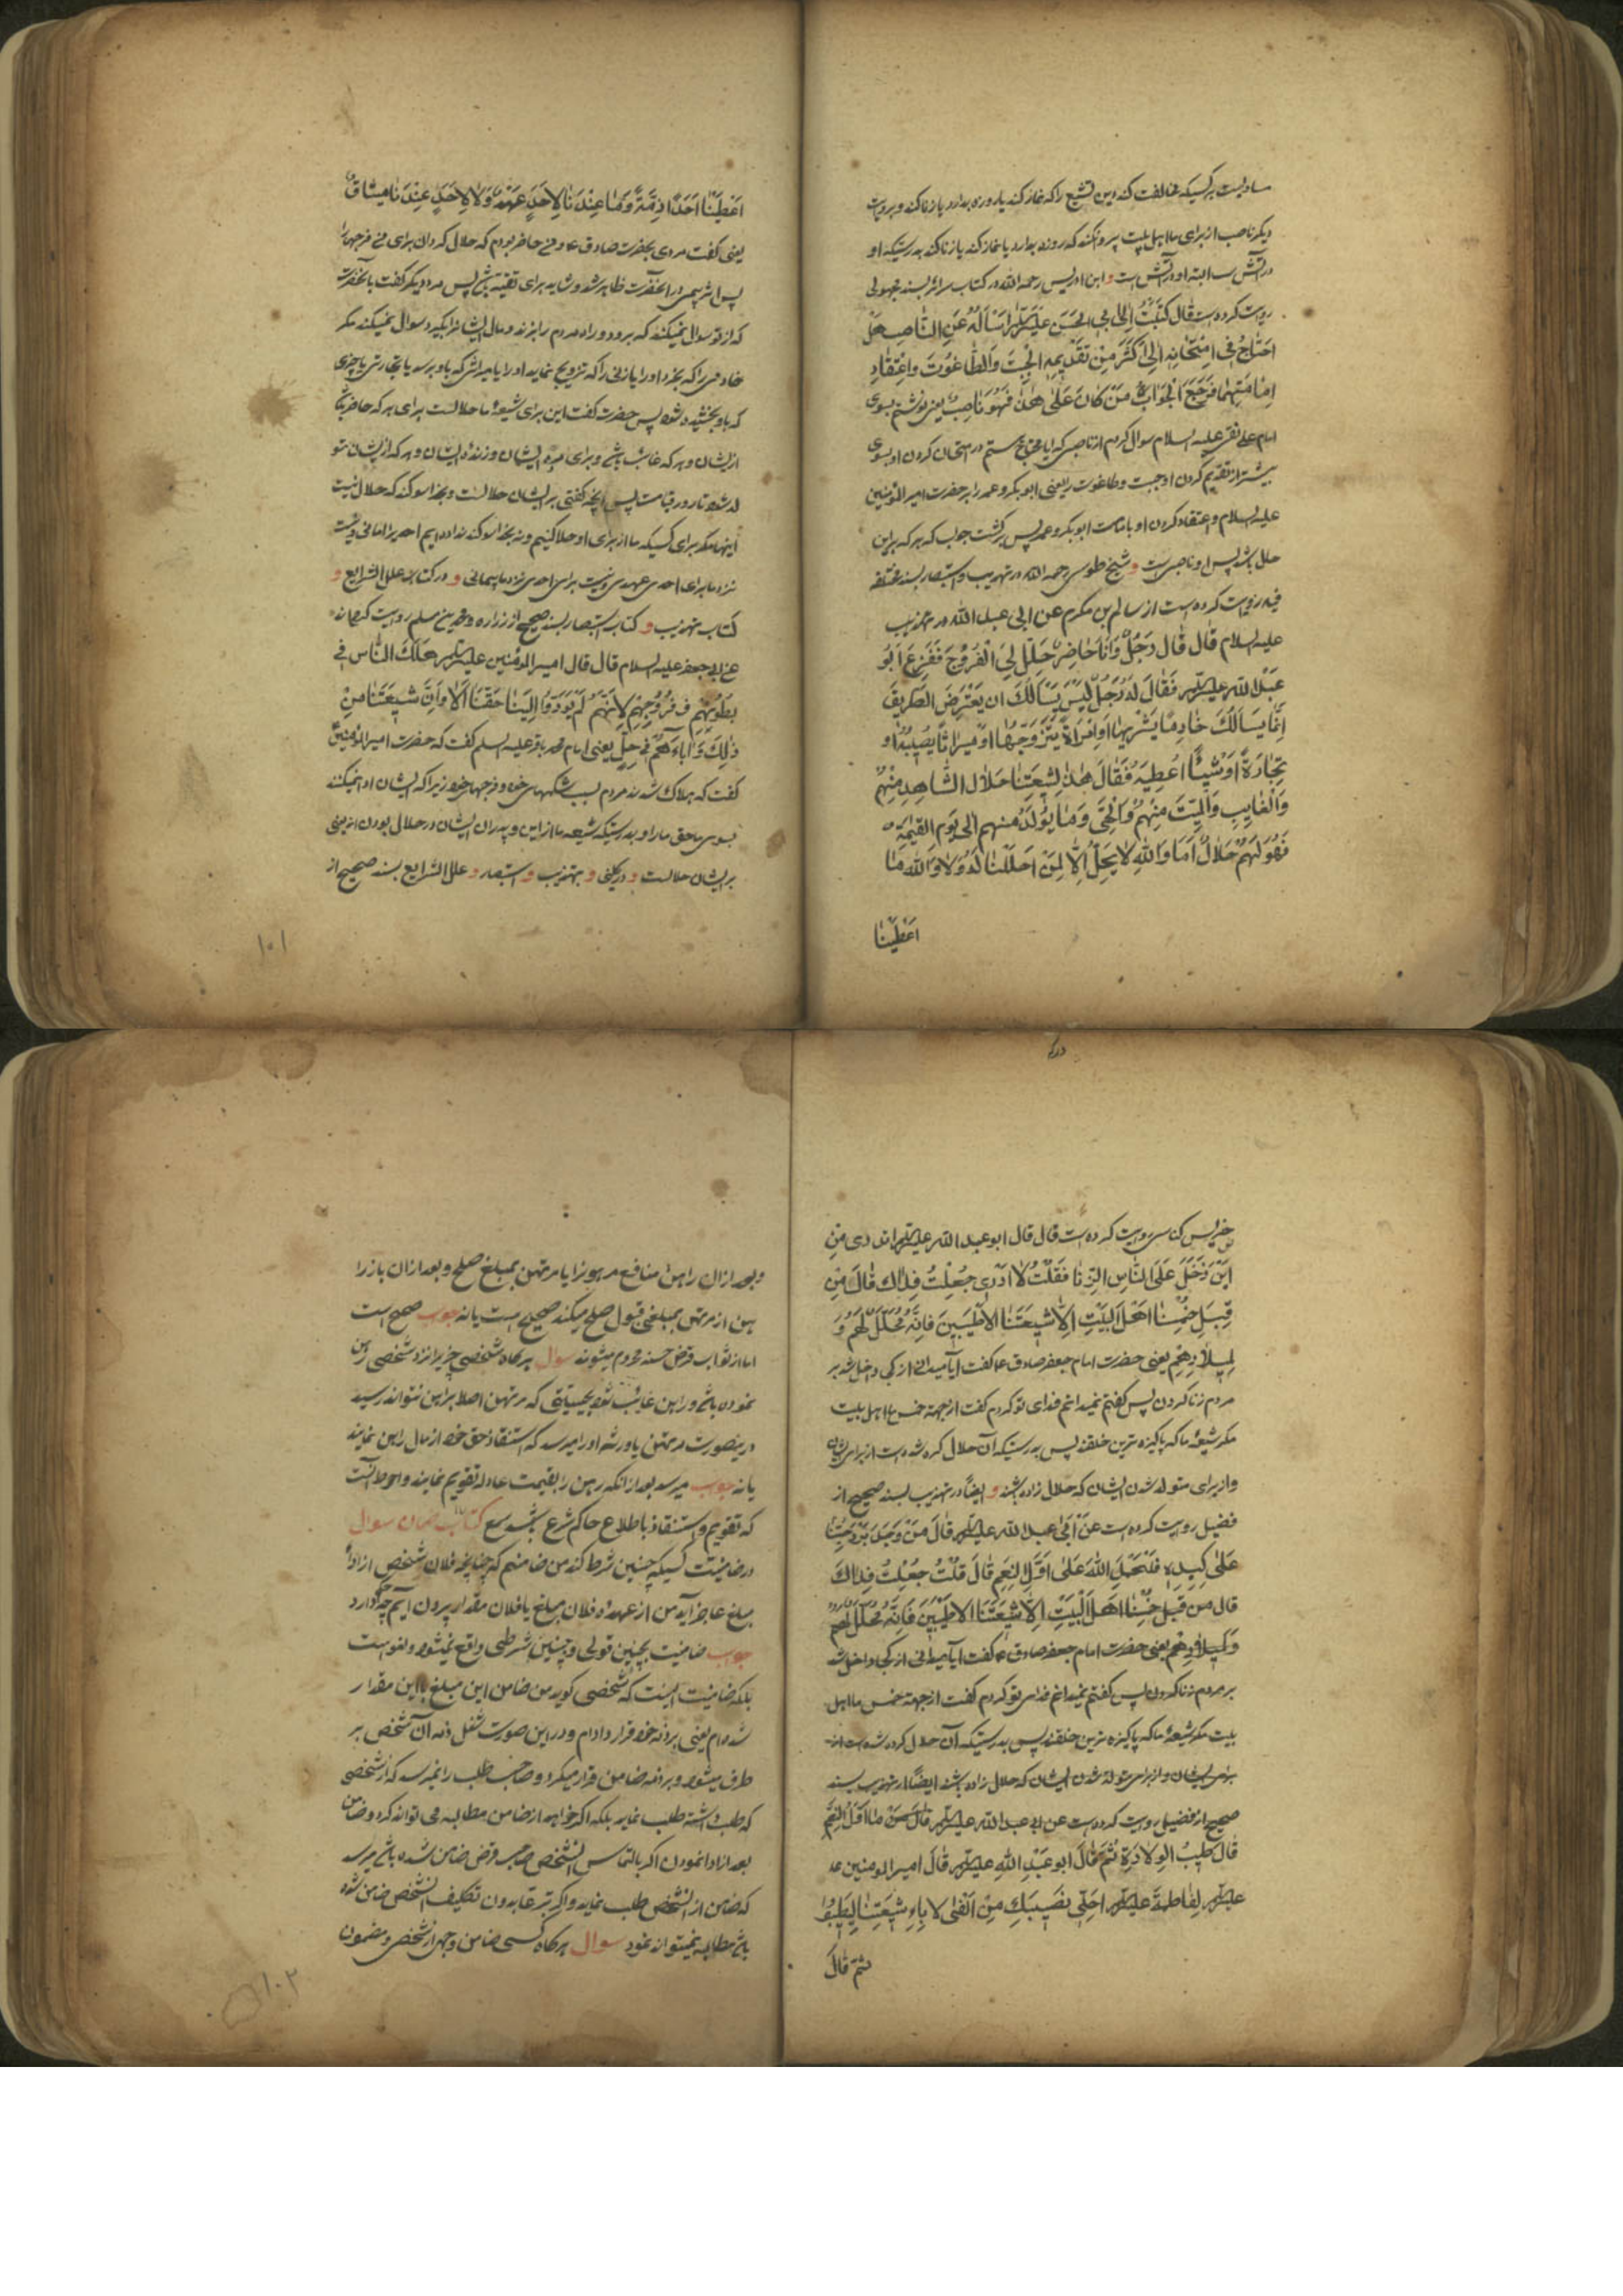 مساویست بر کسیکه مخالفت کند دین تشیع را که نماز کند یا روزه بدارد یا زنا کند و بروایت
دیگر ناصب از برای ما اهل بیت پروا نکند که روزه بدارد یا نماز کند یا زنا کند بدرستیکه او
در آتش است البته او در آتش است و ابن ادریس رحمه الله در کتاب سرائر بسند مجهولی
روایت کرده است قال کَتَبْتُ اِلی ابی الحَسَن علیه السلام اَسْاَلُهُ عَنِ النّاصِبِ هَلْ
اَحْتاجُ فی اِمْتِحانِهِ اِلی اَکْثَرَ مِنْ تَقْدیمِهِ الْجِبْتَ وَالطّاغُوتَ وَاعْتِقادِ
اِمامَتِهِما فَرَجَعَ الْجَوابُ مَنْ کانَ عَلی هذا فَهُوَ ناصِبٌ یعنی نوشتم بسوی
امام علی نقی علیه السلام سوال کردم از ناصبی که ایا محتاج هستم در امتحان کردن او بسوی
بیشتر از تقدیم کردن او جبت و طاغوت را یعنی ابو بکر و عمر را بر حضرت امیر المؤمنین
علیه السلام و اعتقاد کردن او بامامت ابو بکر و عمر پس برگشت جواب که هر که بر این
حال باشد پس او ناصبی است و شیخ طوسی رحمه الله در تهذیب و استبصار بسند مختلف
فیه روایت کرده است از سالم بن مکرم عن ابی عبد الله در تهذیب
علیه السلام قال قالَ رَجُلٌ وَاَنَا حاضِرٌ حَلِّلْ لِیَ الْفُرُوجَ فَفَزِعَ اَبُو
عَبْدِ اللهِ علیه السلام فَقالَ لَهُ رَجُلٌ لَیْسَ یَسْاَلُکَ ان یَعْتَرِضَ الطَّریقَ
اِنَّما یَسْاَلُکَ خادِمًا یَشْتَریها اَوِ امْرَاَةً یَتَزَوَّجُها اَوْ میراثًا یُصیبُهُ او
تِجارَةً اَوْ شَیْئًا اُعْطِیَهُ فَقالَ هذا لِشیعَتِنا حَلالٌ الشّاهِدِ مِنْهُمْ
وَالْغایِبِ وَالْمَیِّتِ مِنْهُمْ وَالْحَیِّ وَما یُولَدُ منهم اِلی یَوْمِ القیمَةِ
فَهُوَ لَهُمْ حَلالٌ اَما وَاللهِ لا یَحِلُّ اِلاّ لِمَنْ اَحْلَلْنا لَهُ وَلا وَاللهِ ما
اَعْطَیْنا
اَعْطَیْنا اَحَدًا ذِمَّةً وَما عِنْدَنا لِاَحَدٍ عَهْدٌ وَلا لِاَحَدٍ عِنْدَنا میثاقٌ
یعنی گفت مردی بحضرت صادق ع و من حاضر بودم که حلال گردان برای من فرجها را
پس اثر بیمی در آنحضرت ظاهر شد و شاید برای تقیه باشد پس مرد دیگر گفت بآنحضرت
که از تو سوال نمیکند که برود و راه مردم را بزند و مال ایشانرا بگیرد سوال نمیکند مگر
خادمی را که بخرد او را یا زنی را که تزویج نماید او را یا میراثی که باو برسد یا تجارتی یا چیزی
که باو بخشیده شود پس حضرت گفت این برای شیعۀ ما حلالست برای هر که حاضر باشد
از ایشان و هر که غائب باشد و برای مردۀ ایشان و زندۀ ایشان و هر که از ایشان متو
لد شود تا روز قیامت پس آنچه گفتی بر ایشان حلالست و بخدا سوگند که حلال نیست
اینها مگر برای کسیکه ما از برای او حلال کنیم و نه بخدا سوگند نداده ایم احدیرا امانی و نیست
نزد ما برای احدی عهدی و نیست برای احدی نزد ما پیمانی و در کتاب علل الشرایع و
کتاب تهذیب و کتاب استبصار بسند صحیح از زراره و محمد بن مسلم روایت کرده اند
عن ابی جعفر علیه السلام قال قال امیر المؤمنین علیه السلام هَلَکَ النّاس فی
بُطُونِهِمْ وَ فُرُوجِهِمْ لِاَنَّهُمْ لَمْ یُؤَدُّوا اِلَیْنا حَقَّنا اَلا وَاِنَّ شیعَتَنا مِنْ
ذلِکَ وَاباءَهُمْ فی حِلٍّ یعنی امام محمد باقر علیه السلم گفت که حضرت امیر المؤمنین
گفت که هلاک شدند مردم بسبب شکمهای خود و فرجهای خود زیرا که ایشان ادا نمیکنند
بسوی ما حق ما را و بدرستیکه شیعه ما از این و پدران ایشان در حلال بودن اند یعنی
بر ایشان حلالست و در کلینی و تهذیب و استبصار و علل الشرایع بسند صحیح از
۱۰۱
ضریس کناسی روایت کرده است قال قال ابو عبد الله علیه السلام اتدری من
اَیْنَ دَخَلَ عَلَی النّاسِ الزِّنا فَقُلْتُ لا اَدْری جُعِلْتُ فِداکَ قالَ مِنْ
قِبَلِ خُمْسِنا اَهْلَ الْبَیْتِ اِلاّ شیعَتَنا الاَطْیَبینَ فَاِنَّهُ مُحَلَّلٌ لَهُمْ وَ
لِمیلادِهِمْ یعنی حضرت امام جعفر صادق ع گفت آیا میدانی از کجا داخل شد بر
مردم زنا کردن پس گفتم نمیدانم فدای تو گردم گفت از جهة خمس ما اهل بیت
مگر شیعۀ ما که پاکیزه ترین خلقند پس بدرستیکه آن حلال کرده شده است از برای ایشان
و از برای متولد شدن ایشان که حلال زاده باشند و ایضاً در تهذیب بسند صحیح از
فضیل روایت کرده است عَنْ اَبی عبد الله علیه السلام قالَ مَنْ وَجَدَ بَرْدَ حُبِّنا
عَلی کَبِدِهِ فَلْیَحْمَدِ اللهَ عَلی اَوَّلِ النِّعَمِ قالَ قُلْتُ جُعِلْتُ فِداکَ
قال من قِبَلِ خُمْسِنا اَهْلَ الْبَیْتِ اِلاّ شیعَتَنَا الاَطْیَبینَ فَاِنَّهُ مُحَلَّلٌ لَهُمْ
وَلِمیلادِهِمْ یعنی حضرت امام جعفر صادق ع گفت آیا میدانی از کجا داخل شد
بر مردم زنا کردن پس گفتم نمیدانم فدای تو گردم گفت از جهة خمس ما اهل
بیت مگر شیعۀ ما که پاکیزه ترین خلقند پس بدرستیکه آن حلال کرده شده است از
برای ایشان و از برای متولد شدن ایشان که حلال زاده باشند ایضاً در تهذیب بسند
صحیح از فضیل روایت کرده است عن ابی عبد الله علیه السلام قال ما اَوَّلُ النِّعَمِ
قالَ طیبُ الْوِلادَةِ ثُمَّ قالَ ابو عَبْدِ اللهِ علیه السلام قالَ امیر المومنین
علیه السلام لِفاطِمَةَ علیها السلام اَحِلّی نَصیبَکِ مِنَ الْفَیْءِ لاباءِ شیعَتِنا لِیَطیبُوا
ثمّ قالَ
و بعد از آن راهن منافع مرهونرا با مرتهن بمبلغ صلح و بعد از آن باز را
هن از مرتهن بمبلغی قبول صلح میکند صحیح است یا نه جواب صحیح است
اما از ثواب قرض حسنه محروم میشوند سوال هرگاه شخصی چیزیرا نزد شخصی رهن
نموده باشد و راهن غایب شود بحیثیتی که مرتهن اصلا براهن نتواند رسید
در اینصورت مرتهن یا ورثه او را میرسد که استنقاذ حق خود از مال راهن نمایند
یا نه جواب میرسد بعد از آنکه رهن را بقیمت عادله تقویم نمایند و احوط آنست
که تقویم و استنقاذ باطلاع حاکم شرع باشد کتاب ضمان سوال
در ضامنیت کسیکه چنین شرط کند من ضامنم که چنانچه فلان شخص از اداء
مبلغ عاجز آید من از عهدۀ فلان مبلغ یا فلان مقدار بیرون آیم چه حکم دارد
جواب ضامنیت بچنین قولی و چنین شرطی واقع نمیشود و لغو است
بلکه ضامنیت اینست که شخصی گوید من ضامن این مبلغ یا این مقدار
شده ام یعنی بر ذمه خود قرار دادم و در این صورت شغل ذمه آن شخص بر
طرف میشود و بر ذمه ضامن قرار میگیرد و صاحب طلب را نمیرسد که از شخصی
که طلب داشته طلب نماید بلکه اگر خواهد از ضامن مطالبه می تواند کرد و ضامن
بعد از ادا نمودن اگر بالتماس آنشخص صاحب قرض ضامن شده باشد میرسد
که ضامن از آنشخص طلب نماید و اگر تبرعا بدون تکلیف آنشخص ضامن شده
باشد مطالبه نمیتواند نمود سوال هرگاه کسی ضامن وجهی از شخصی و مضمون
۱۰۲